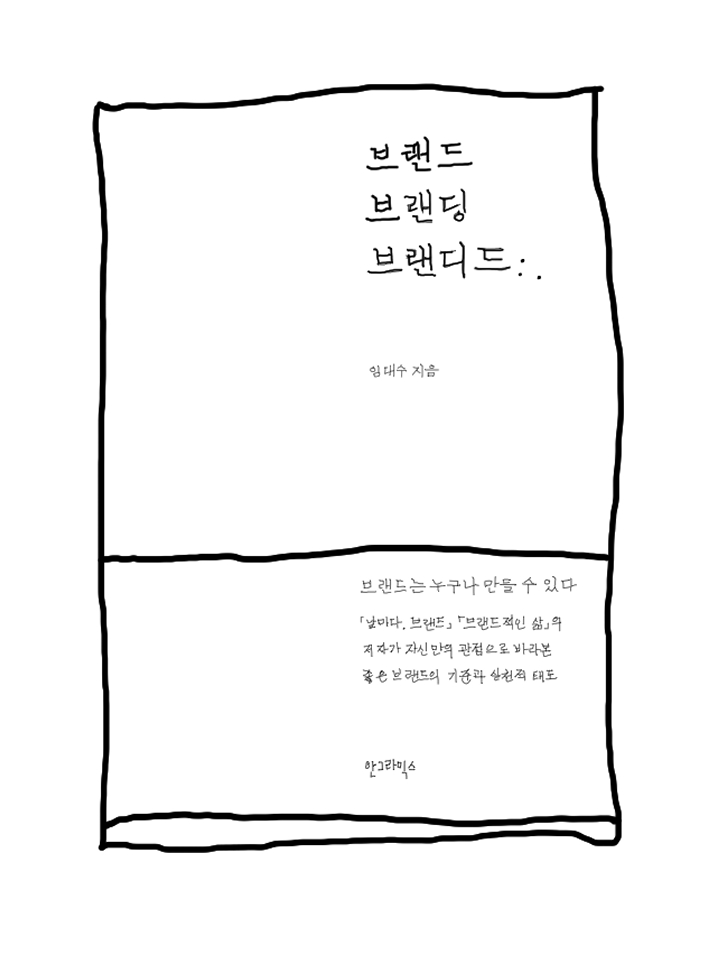 브랜드
브랜딩
브랜디드:.
임대수 지음
브랜드는 누구나 만들 수 있다
「날마다, 브랜드」「브랜드적인 삶」의
저자가 자신만의 관점으로 바라본
좋은 브랜드의 기준과 실천적 태도
안그라픽스